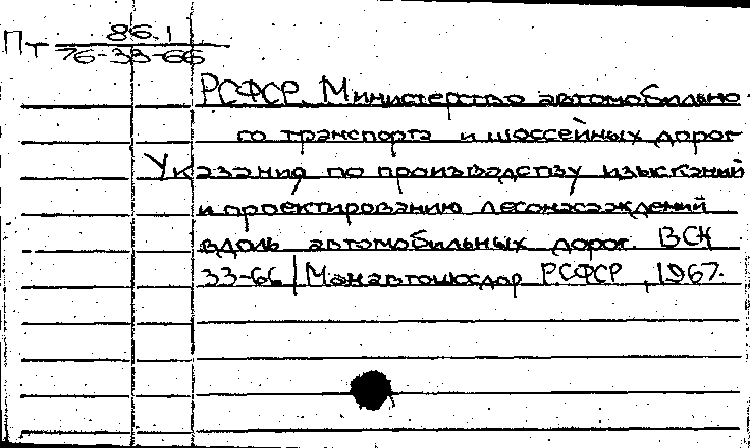 Пт 86.1
76-33-66
РСФСР. Министерство автомобильно
го транспорта и шоссейных дорог
Указания по производству изысканий
и проектированию лесонасаждений
вдоль автомобильных дорог. ВСН
33-66 / Минавтошосдор РСФСР, 1967.